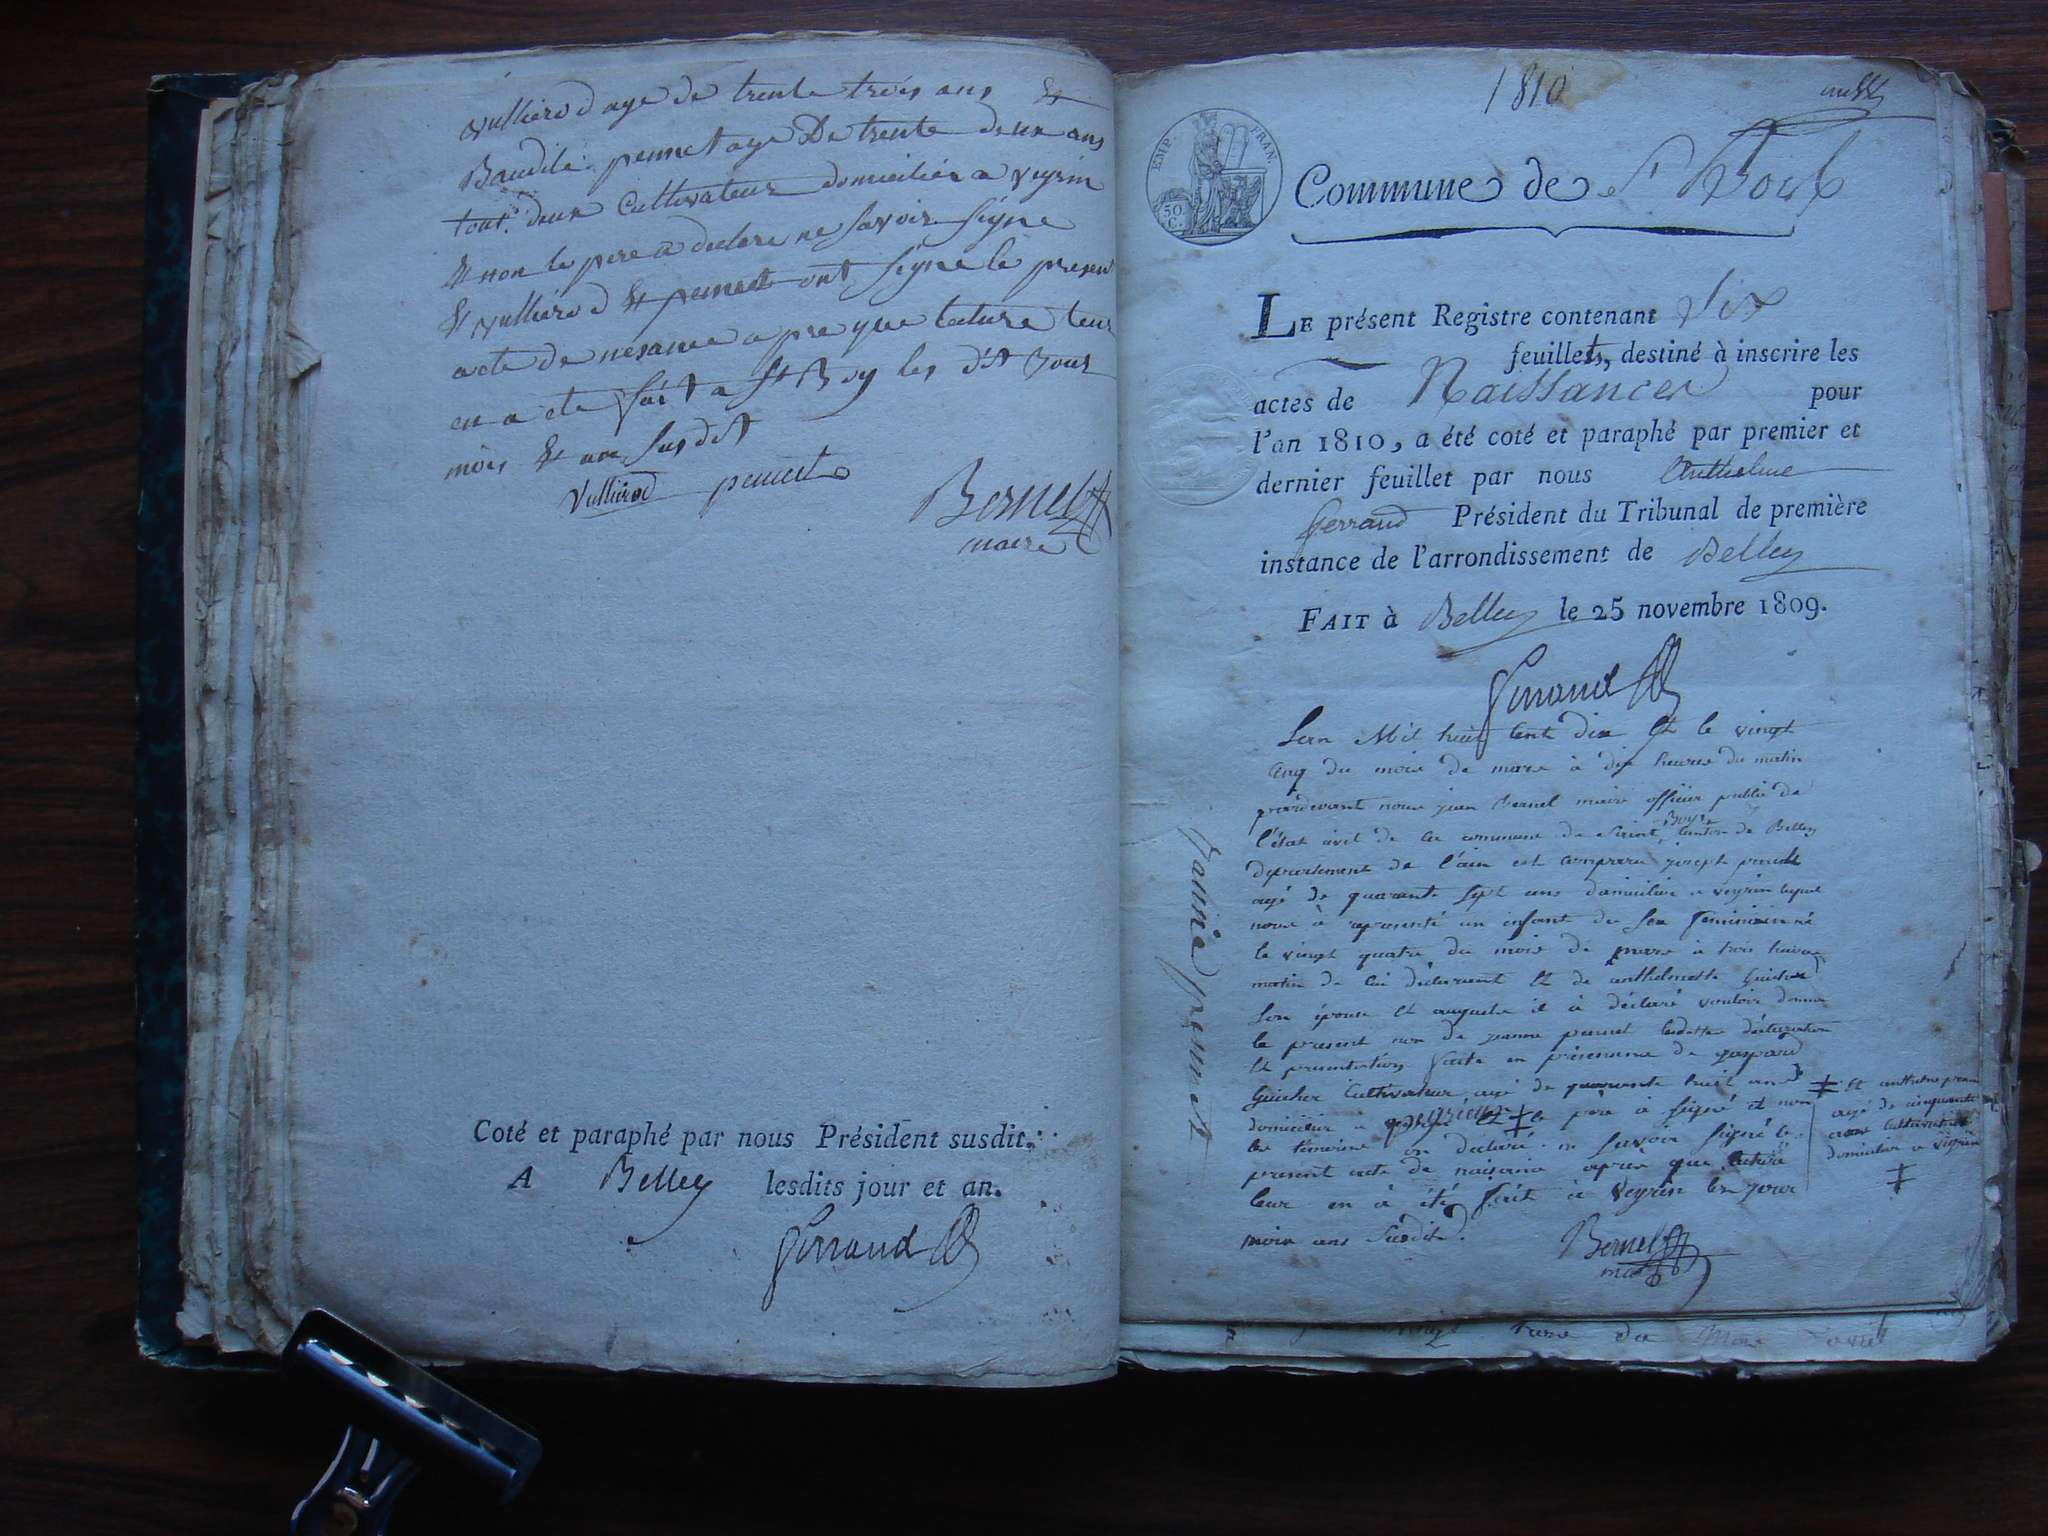 vullierod age de trente trois ans &
Baudile pennet age De trente deux ans
tout deux Cultivateur domicilier a veyrin
& non le pere a declare ne savoir signe
& vullierod & pennet ont signe le present
acte de nesance a pre que lecture leur
en a ete fait a St Boy les dit Jour
mois & an susdit
Vullierod pennet
Bernet
maire
Coté et paraphé par nous Président susdit.
A Belley lesdits jour et an.
Gerraud
1810
EMP. FRAN.
50 C.
Commune de St Boix
LE présent Registre contenant Six
feuillets, destiné à inscrire les
actes de Naissances pour
l'an 1810, a été coté et paraphé par premier et
dernier feuillet par nous Anthelme
Gerraud Président du Tribunal de première
instance de l'arrondissement de Belley
FAIT à Belley le 25 novembre 1809.
Gerraud
Lan Mil huit Cent dix Et le vingt
Cinq du mois de mars à dix heures du matin
pardevant nous jean Bernet maire officier public de
l'état civil de la commune de Saint Boys Canton de Belley
departement de l'ain est comparu joseph pennet
agé de quarante sept ans domicilier a veyrin lequel
nous à representé un enfant du Sex feminin né
le vingt quatre du mois de mars à trois heures
matin de lui déclarant Et de anthelmette Guicher
Son épouse Et auquelle il à déclaré vouloir donner
le present non de jeanne pennet lesdittes déclaration
Et presentation faite en presence de gaspard
Guicher Cultivateur agé de quarante huit ans
domicilier a Et ‡ le père à signé et non
les temoins on declaré ne savoir signé le
present acte de naisance après que lecture
leur en à été fait à veyrin les jour
mois ans susdit.
‡ Et anthelme
agé de cinquante
ans Cultivateur
domicilier a veyrin
‡
Bernet
maire
jannie pennet
du mois